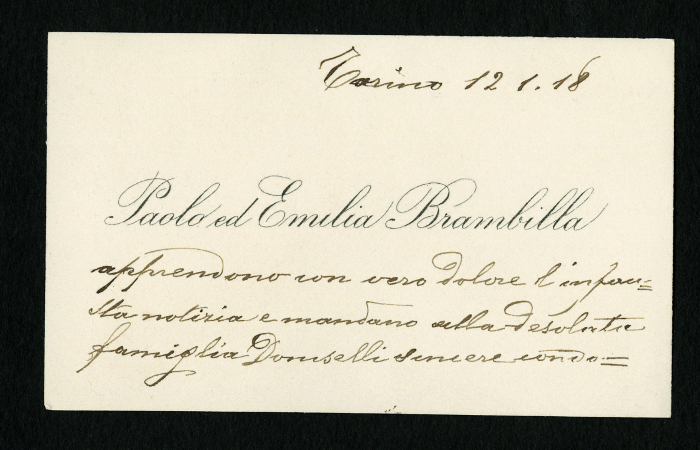 Torino 12.1.18
Paolo ed Emilia Brambilla
apprendono con vero dolore l'infau=
sta notizia e mandano alla desolata
famiglia Doniselli sincere condo=